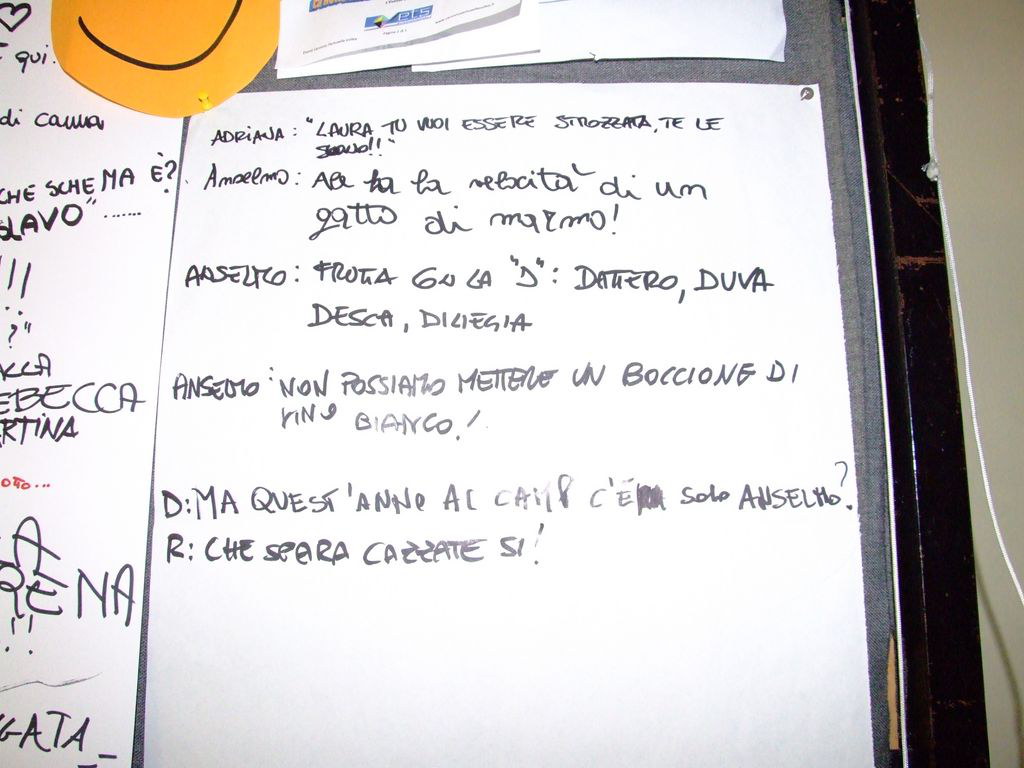 qui.
di canna
CHE SCHEMA È?
SLAVO" ......
!!!
?"
EBECCA
RTINA
RENA
!!
GATA
PTS
ADRIANA: "LAURA TU VUOI ESSERE STROZZATA, TE LE
Anselmo: ha la velocità di un
gatto di marmo!
ANSELMO: FRUTTA CON LA "D": DATTERO, DUVA
DESCA, DILIEGIA
ANSELMO: NON POSSIAMO METTERE UN BOCCIONE DI
VINO BIANCO!
D: MA QUEST'ANNO AL CAMP C'È SOLO ANSELMO?
R: CHE SPARA CAZZATE SI!